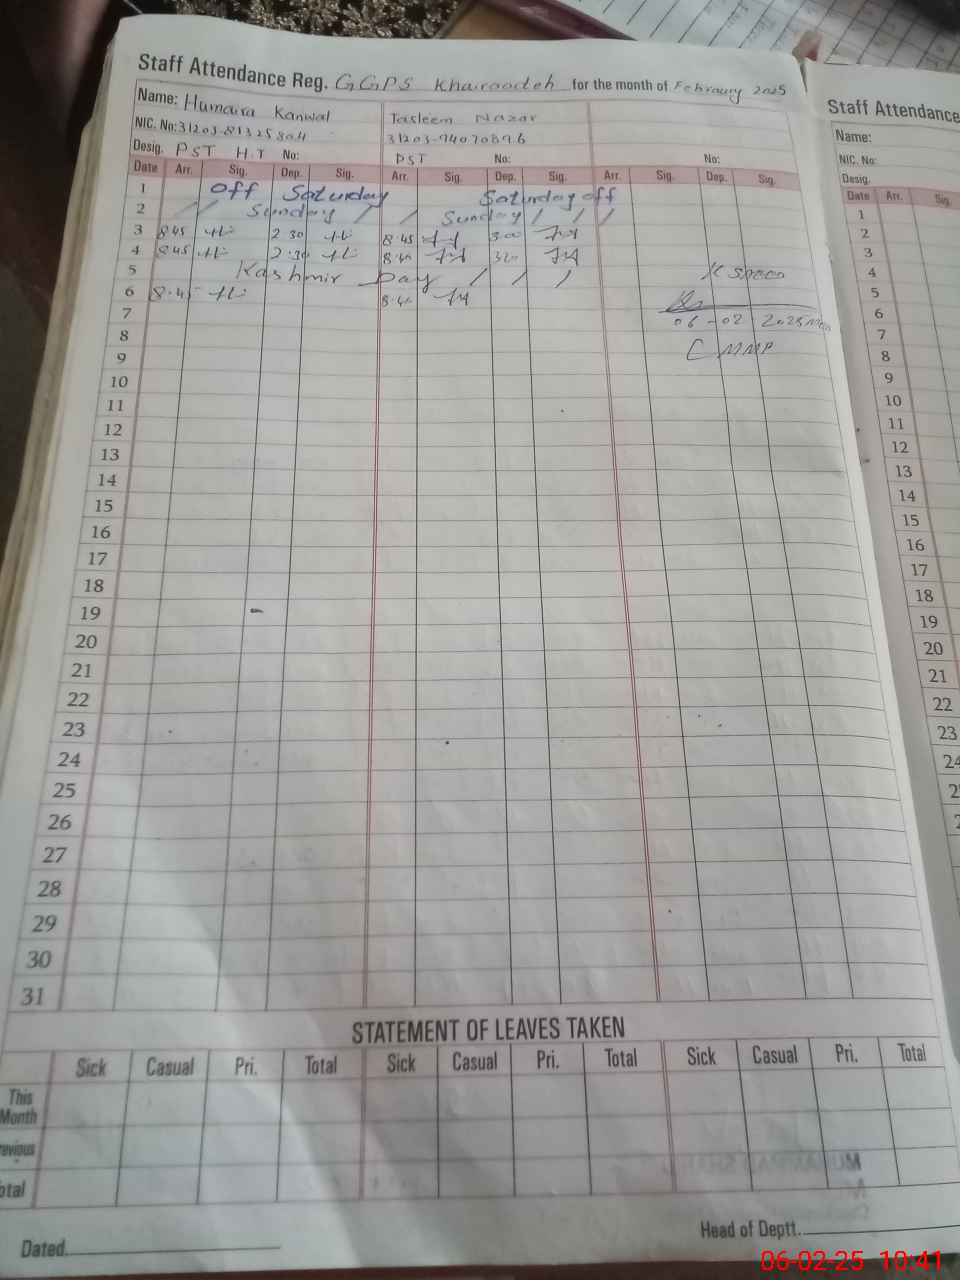 Staff Attendance Reg. GGPS Khairaadeh for the month of February 2025
Name: Humaira Kanwal Tasleem Nazar
NIC. No: 31203-81325804 31203-9407089.6
Desig. PST H.T No: PST No: No:
Date Arr. Sig. Dep. Sig. Arr. Sig. Dep. Sig. Arr. Sig. Dep. Sig.
1 Off Saturday Saturday off
2 Sunday Sunday
3 8:45 2:30 8:45 3:00
4 8:45 2:30 8:40
5 Kashmir Day
6 8:45 8:40
06-02 2025
7
8
9
10
11
12
13
14
15
16
17
18
19
20
21
22
23
24
25
26
27
28
29
30
31
STATEMENT OF LEAVES TAKEN
Sick Casual Pri. Total Sick Casual Pri. Total Sick Casual Pri. Total
This Month
revious
otal
Head of Deptt.
Dated
Staff Attendance
Name:
NIC. No:
Desig.
Date Arr. Sig.
1
2
3
4
5
6
7
8
9
10
11
12
13
14
15
16
17
18
19
20
21
22
23
24
06-02-25 10:41